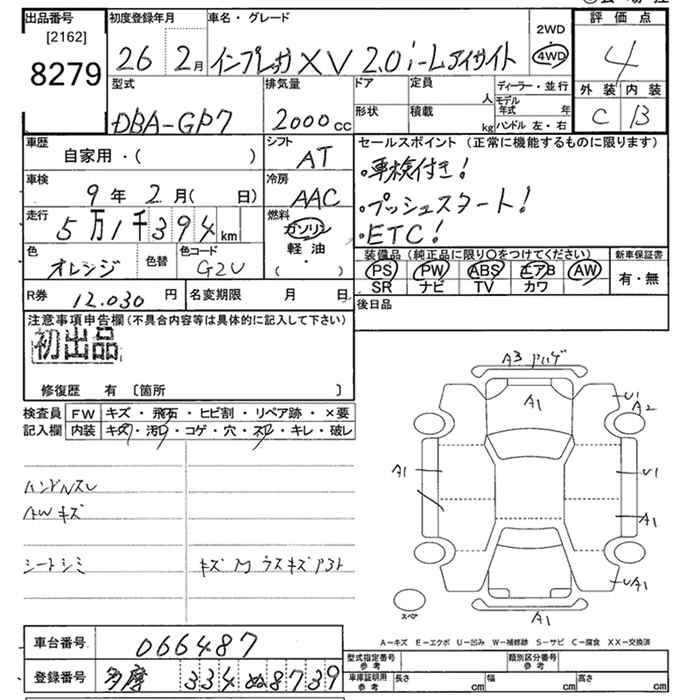 出品番号
[2162]
8279
初度登録年月
26 2月
車名・グレード
インプレッサ XV 2.0i-L アイサイト
2WD
4WD
評価点
4
外装 内装
C B
型式
DBA-GP7
排気量
2000cc
ドア
形状
定員
人
積載
kg
ディーラー・並行
モデル年式 年
ハンドル 左・右
車歴
自家用・( )
シフト
AT
車検
9年 2月( 日)
冷房
AAC
走行
5万1千394km
燃料
ガソリン
軽油
( ・ )
色
オレンジ
色替
色コード
G2U
セールスポイント(正常に機能するものに限ります)
・車検付き!
・プッシュスタート!
・ETC!
装備品(純正品に限り○をつけてください)
新車保証書
PS PW ABS エアB AW
SR ナビ TV カワ
有・無
R券 12.030円
名変期限 月 日
後日品
注意事項申告欄(不具合内容等は具体的に記入して下さい)
初出品
修復歴 有 〔箇所 〕
検査員記入欄
FW キズ・飛石・ヒビ割・リペア跡・×要
内装 キズ・汚レ・コゲ・穴・スレ・キレ・破レ
ハンドルスレ
AWキズ
シートシミ
A3 アハゲ
A1
U1
A2
A1
U1
A1
UA1
A1
スペア
A-キズ E-エクボ U-凹み W-補修跡 S-サビ C-腐食 XX-交換済
車台番号
066487
登録番号
多摩 334 ぬ 8739
型式指定番号
参考
類別区分番号
参考
車庫証明用
参考
長さ cm
幅 cm
高さ cm